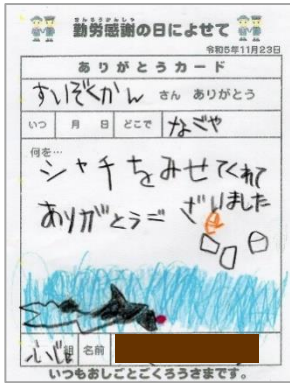 きんろうかんしゃ
勤労感謝の日によせて
令和5年11月23日
ありがとうカード
すいぞくかん さん ありがとう
いつ 月 日 どこで なごや
何を…
シャチをみせてくれて
ありがとうございました
組 名前
いつもおしごとごくろうさまです。